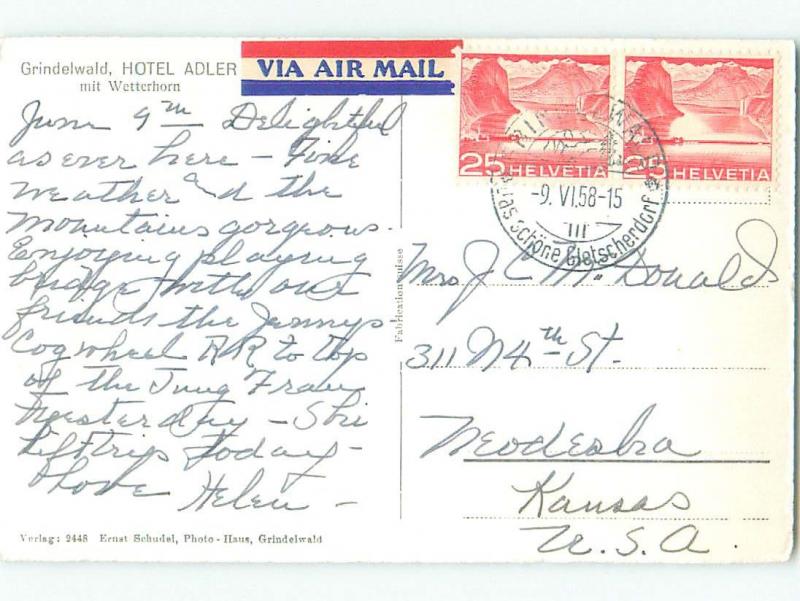 Grindelwald, HOTEL ADLER
mit Wetterhorn
VIA AIR MAIL
25 HELVETIA
25 HELVETIA
-9. VI.58-15
III
das schöne Gletscherdorf
June 9th - Delightful
as ever here - Fine
weather and the
mountains gorgeous.
Enjoying playing
bridge with our
friends the Jennys
Cogwheel RR to top
of the Jung Frau
yesterday - Ski
lift trips today -
Love Helen -
Fabrication Suisse
Mrs J C McDonald
311 N 4th St.
Neodesha
Kansas
U.S.A.
Verlag: 2448 Ernst Schudel, Photo-Haus, Grindelwald